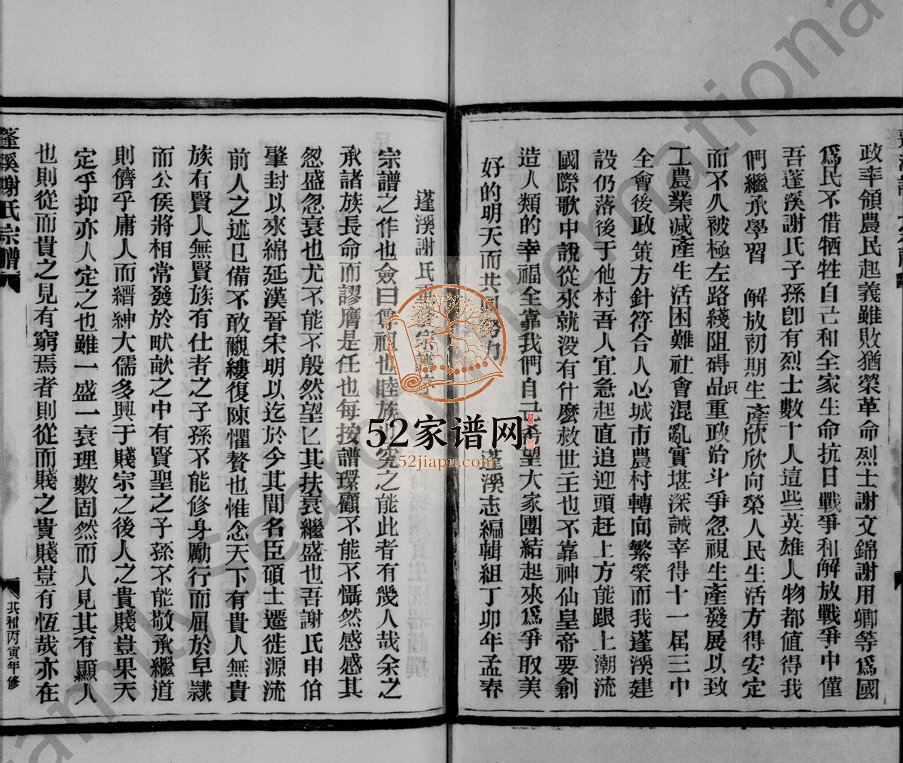 政率領農民起義雖敗猶榮革命烈士謝文錦謝用卿等爲國
爲民不借牺牲自己和全家生命抗日戰爭和解放戰爭中僅
吾蓬溪謝氏子孫卽有烈士數十人這些英雄人物都值得我
們繼承學習 解放初期生產欣欣向榮人民生活方得安定
而不久被極左路綫阻碍品只重政治斗爭忽視生產發展以致
工農業減產生活困難社會混亂實堪深誡幸得十一屆三中
全會後政策方針符合人心城市農村轉向繁榮而我蓬溪建
設仍落後于他村吾人宜急起直追迎頭赶上方能跟上潮流
國際歌中說從來就没有什麽救世主也不靠神仙皇帝要創
造人類的幸福全靠我們自己希望大家團結起來爲爭取美
好的明天而共同努力 蓬溪志編輯組丁卯年孟春
蓬溪謝氏重修宗譜序
宗譜之作也僉曰尊祖也睦族也究之能此者有幾人哉余之
承諸族長命而謬膺是任也每按譜環顧不能不懾然感感其
忽盛忽衰也尤不能不殷然望望其扶衰繼盛也吾謝氏申伯
肇封以來綿延漢晉宋明以迄於今其間名臣碩士遷徙源流
前人之述已備不敢覼縷復陳懼贅也惟念天下有貴人無貴
族有賢人無賢族有仕者之子孫不能修身勵行而屈於皁隸
而公侯將相常發於畎畝之中有賢聖之子孫不能敬承繼道
則儕乎庸人而縉紳大儒多興于賤宗之後人之貴賤豈果天
定乎抑亦人定之也雖一盛一衰理數固然而人見其有顯人
也則從而貴之見有窮焉者則從而賤之貴賤豈有恆哉亦在
蓬溪謝氏宗譜
共和丙寅年修
52家谱网
52jiapu.com